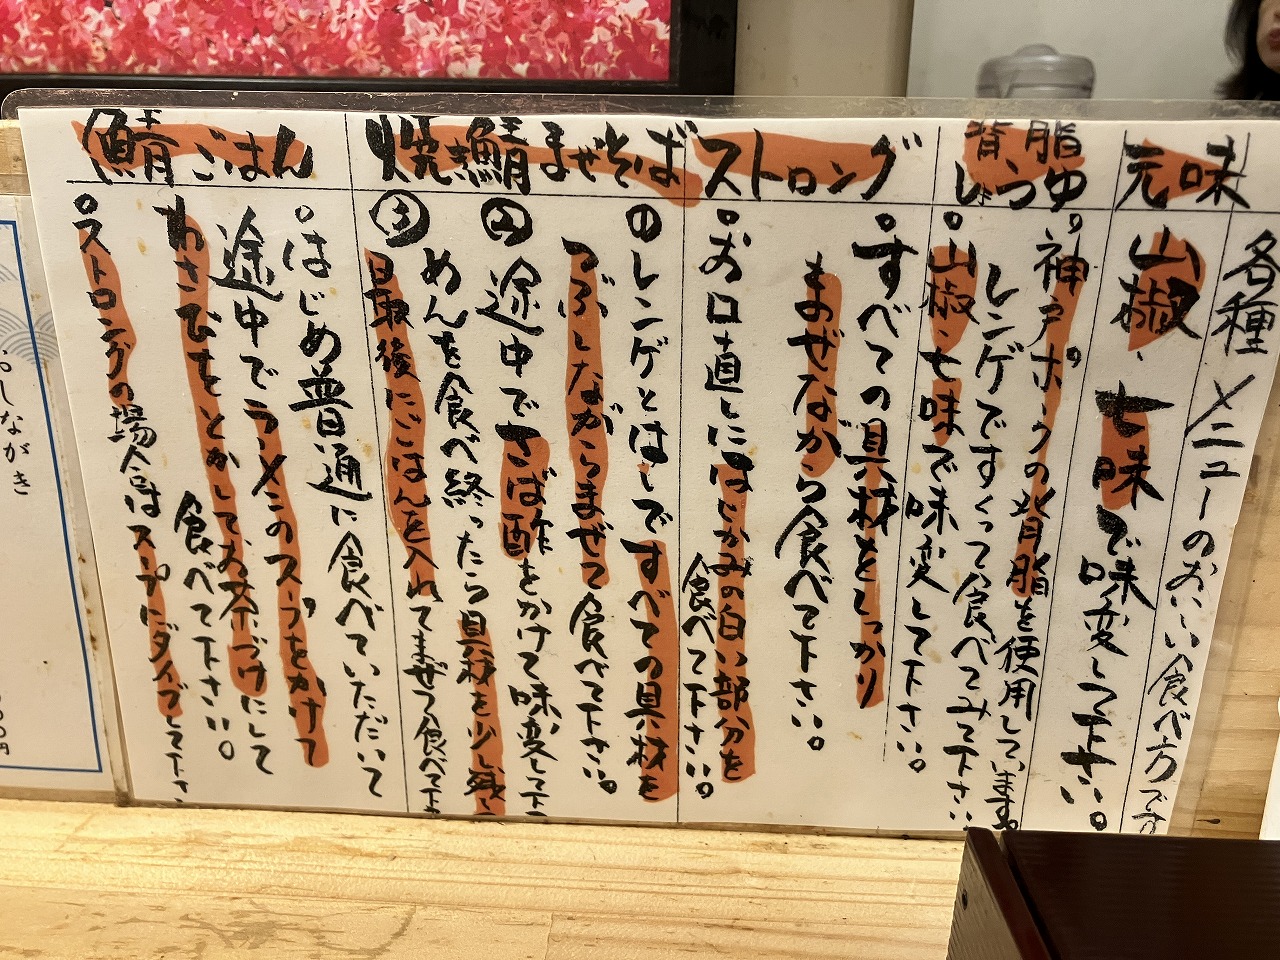 各種メニューのおいしい食べ方です
元味
山椒、七味で味変して下さい。
背脂しょうゆ
。神戸ポークの背脂を使用しています。
レンゲですくって食べてみて下さい
。山椒、七味で味変して下さい。
ストロング
。すべての具材としっかり
まぜながら食べて下さい。
。お口直しにはじかみの白い部分を
食べて下さい。
焼き鯖まぜそば
①レンゲとはしですべての具材を
つぶしながらまぜて食べて下さい。
②途中でさば酢をかけて味変して下
めんを食べ終ったら具材を少し残し
③最後にごはんを入れてまぜて食べて下
鯖ごはん
。はじめ普通に食べていただいて
途中でラーメンのスープをかけて
わさびをとかしてお茶づけにして
食べて下さい。
。ストロングの場合はスープにダイブして下さ
おしながき
円